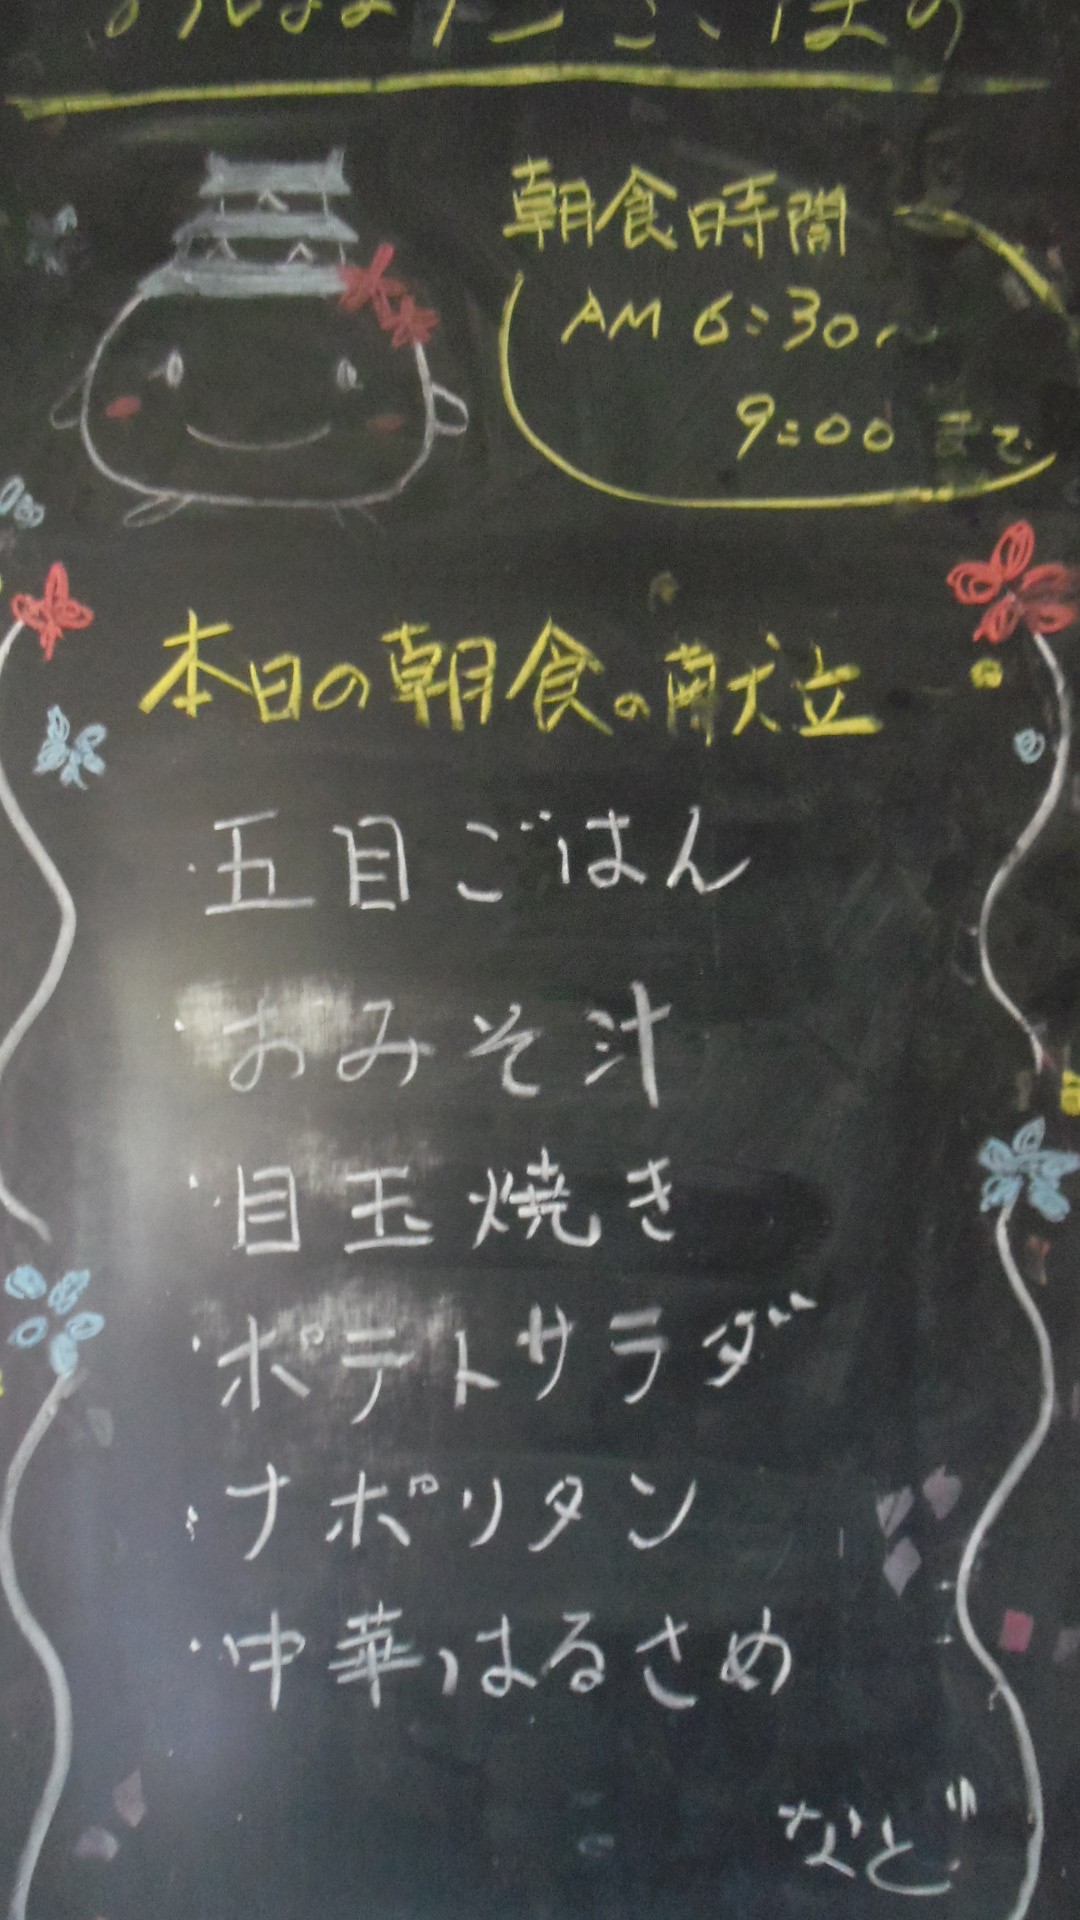 朝食時間
AM 6:30〜
9:00 まで
本日の朝食の献立
・五目ごはん
・おみそ汁
・目玉焼き
・ポテトサラダ
・ナポリタン
・中華はるさめ
など